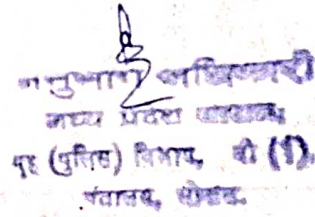 अनुभाग अधिकारी
मध्य प्रदेश शासन
गृह (पुलिस) विभाग, बी (1),
मंत्रालय, भोपाल.